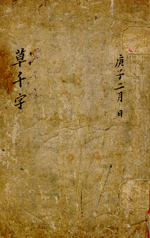 庚子二月 日
草千字